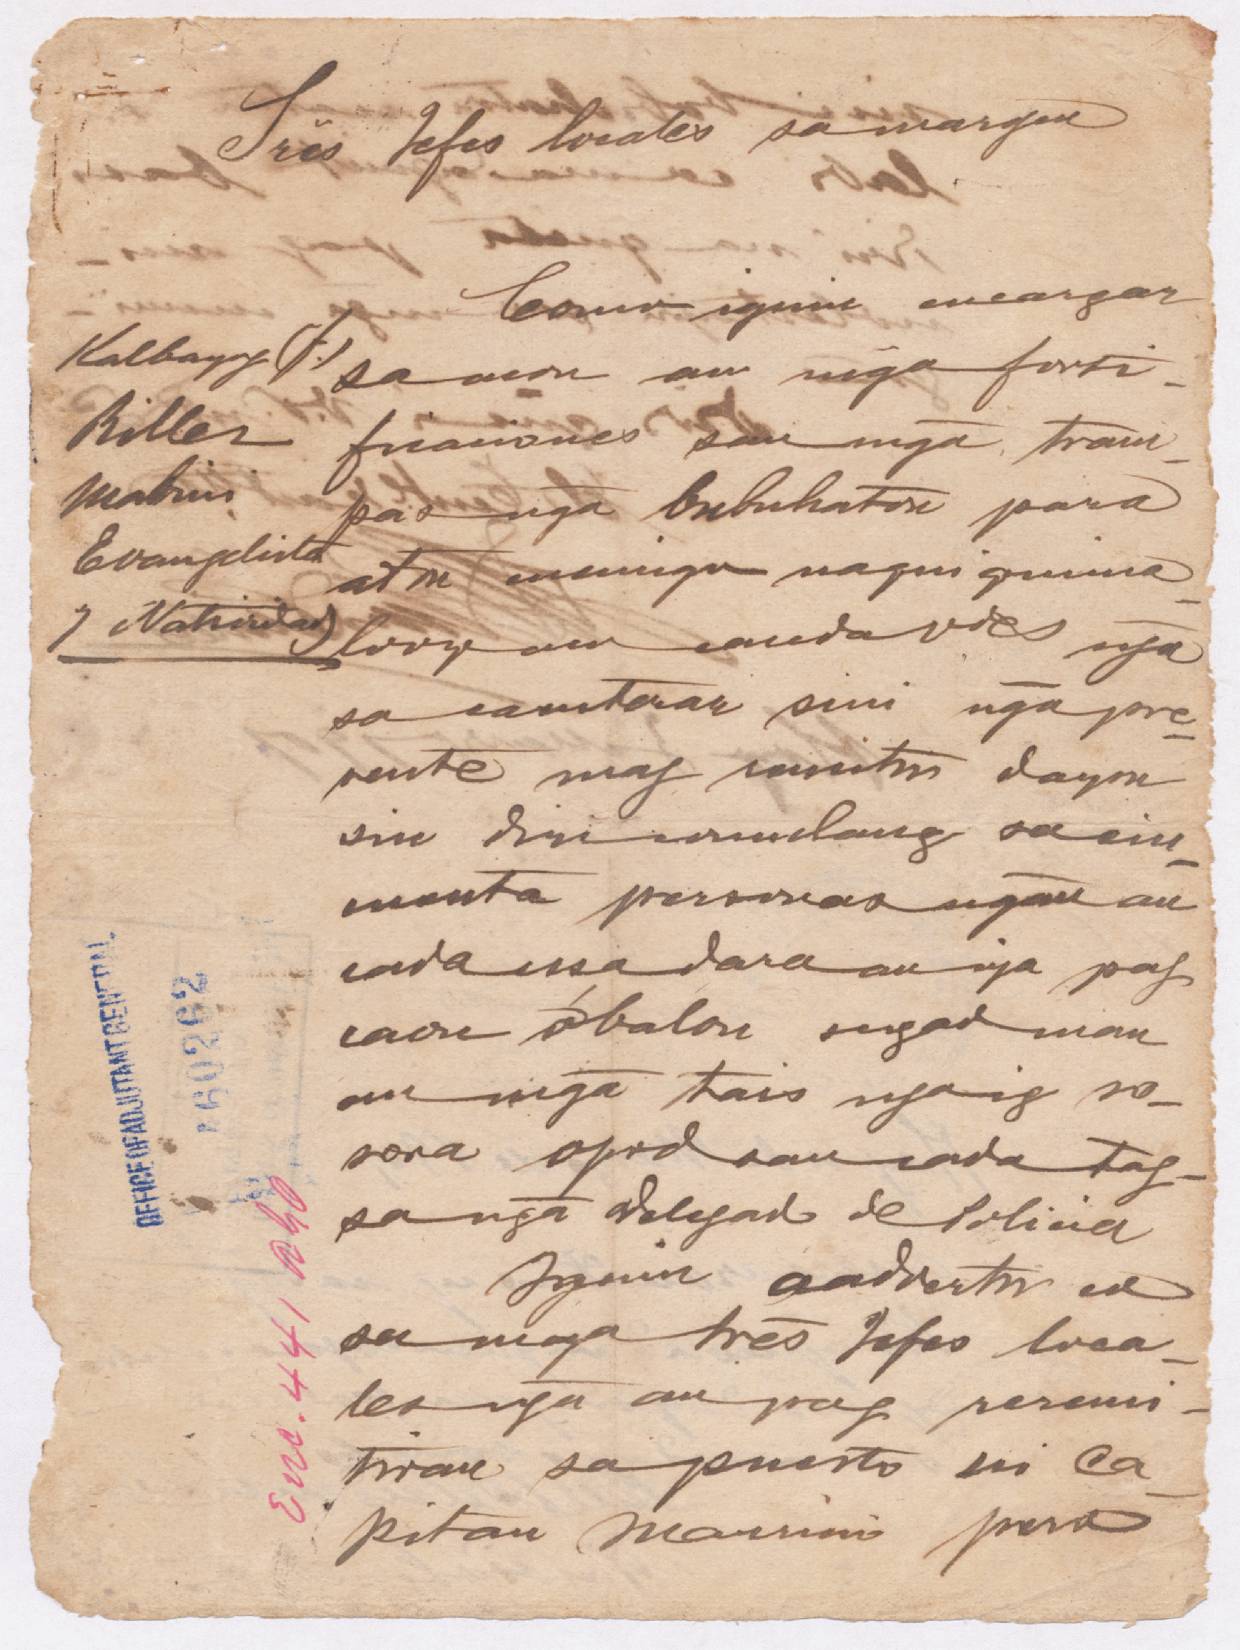 Srēs Jefes locales sa margen
Kalbayog (f.)
Killer
Mabini
Evangelista
y Natividad
Como iguin encargar
sa mon an nḡa forti-
ficaciones san mḡa tram-
pas nḡa bubuhaton para
aton nagui quina
an nḡa
sa cantoran sini nḡa pre-
sente mag remitir dayon
sin diri comulang sa cin-
cuenta personas nḡan an
cada usa dara an iya pag
caon ó balon sugad man
an mḡa tais nga ig so-
sora opod san cada tag-
sa nḡa delegado de Policia
Iguin aadvertir co
sa mḡa srēs Jefes loca-
les nḡa an pag reremi-
tiran sa puesto ni Ca-
pitan pero
OFFICE OF ADJUTANT GENERAL
60262
Enc. 441